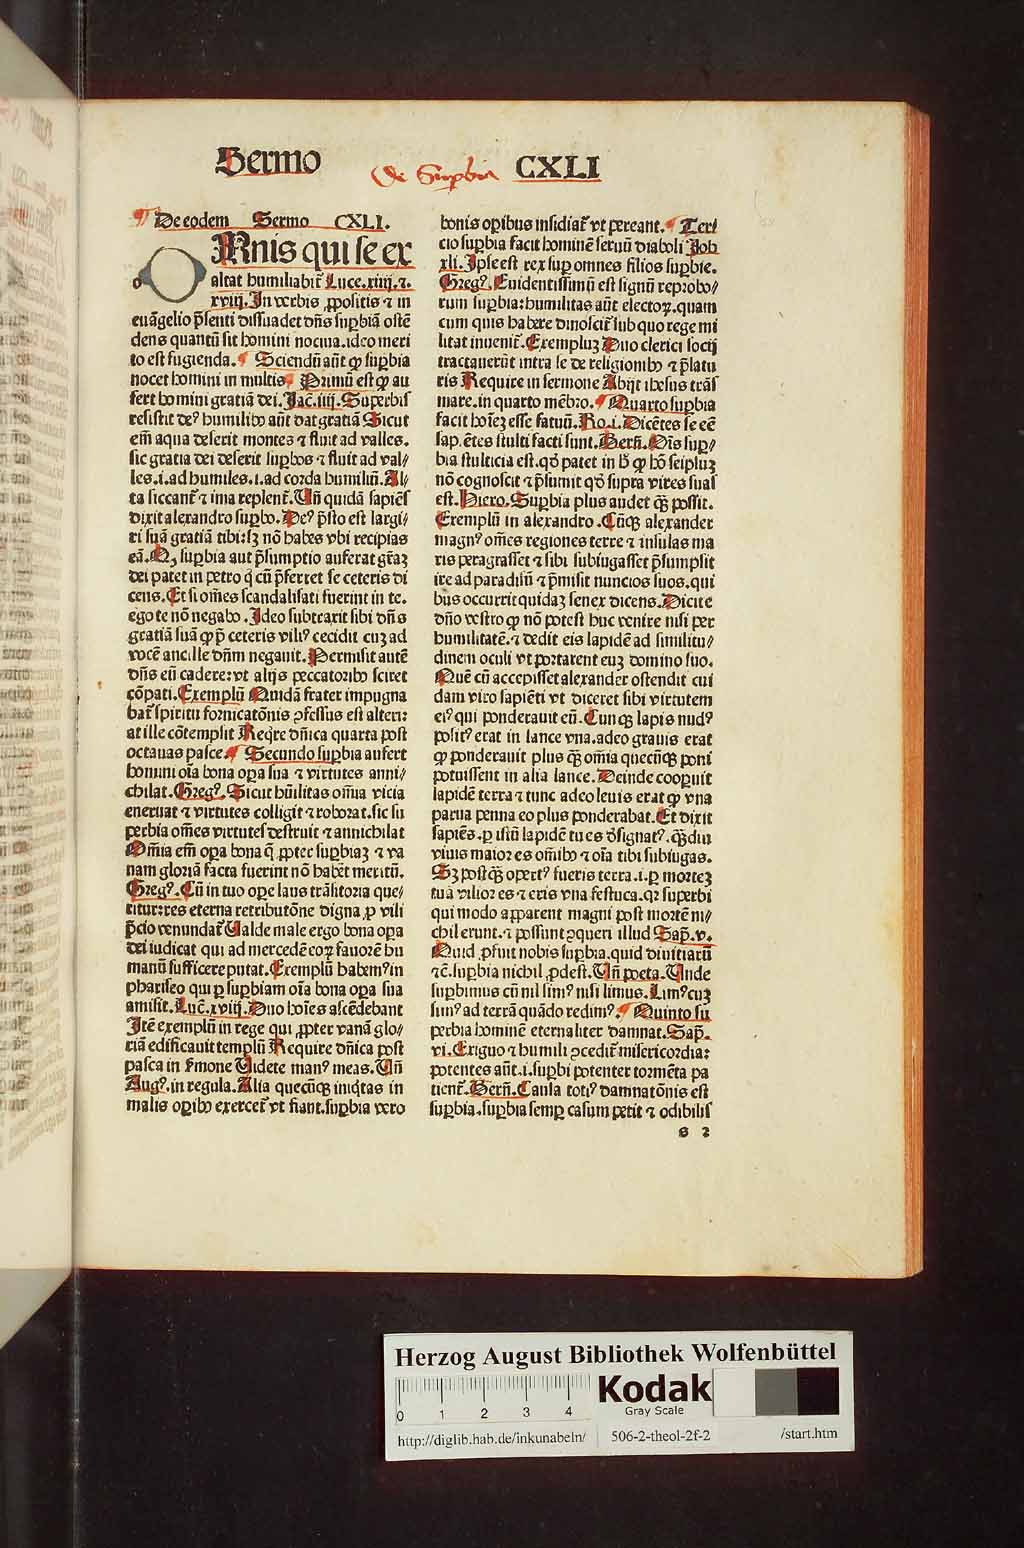 Sermo
De Sup̱bia
CXLI
¶ De eodem Sermo CXLI.
OMnis qui se ex
o altat humiliabit᷑ Luce.xiiij.⁊.
xviij. In verbis ꝓpositis ⁊ in
euāgelio p̄senti dissuadet dn̄s suꝑbiā ostē
dens quantū sit homini nociua.ideo meri
to est fugienda. ¶ Sciendū aūt ꝙ suꝑbia
nocet homini in multis ¶ Primū est ꝙ au
fert homini gratiā dei. Jac.iiij. Superbis
resistit deꝰ humilibꝰ aūt dat gratiā Sicut
em̄ aqua deserit montes ⁊ fluit ad valles.
sic gratia dei deserit suꝑbos ⁊ fluit ad val/
les.i.ad humiles.i.ad corda humiliū. Al/
ta siccant᷑ ⁊ ima replent᷑. Un̄ quidā sapiēs
dixit alexandro suꝑbo. Deꝰ p̄sto est largi/
ri suā gratiā tibi: sꝫ nō habes vbi recipias
eā. Qꝫ suꝑbia aut p̄sumptio auferat gr̄aꝫ
dei patet in petro q̇ cū p̄ferret se ceteris di
cens. Et si om̄es scandalisati fuerint in te.
ego te nō negabo. Ideo subtraxit sibi dn̄s
gratiā suā ꝙ p̄ ceteris viliꝰ cecidit cuꝫ ad
vocē ancille dn̄m negauit. Permisit autē
dn̄s eū cadere: vt alijs peccatoribꝰ sciret
cōpati. Exemplū Quidā frater impugna
bat᷑ spiritu fornicatōnis ꝯfessus est alteri:
at ille cōtemplit Reqꝛe dn̄ica quarta post
octauas pasce. ¶ Secundo suꝑbia aufert
homini oīa bona oꝑa sua ⁊ virtutes anni/
chilat. Gregꝰ. Sicut hūilitas om̄ia vicia
eneruat ⁊ virtutes colligit ⁊ roborat. sic su
perbia om̄es virtutes destruit ⁊ annichilat
Om̄ia em̄ oꝑa bona q̄ ꝓpter suꝑbiaꝫ ⁊ va
nam gloriā facta fuerint nō habēt meritū.
Gregꝰ. Cū in tuo oꝑe laus trāsitoria que/
ritur: res eterna retributōne digna ꝓ vili
p̄cio venundat᷑ Ualde male ergo bona oꝑa
dei iudicat qui ad mercedē eoꝝ fauorē hu
manū sufficere putat. Exemplū habemꝰ in
phariseo qui ꝑ suꝑbiam oīa bona oꝑa sua
amisit. Luc̄.xviij. Duo hoīes ascēdebant
Itē exemplū in rege qui ꝓpter vanā glo/
riā edificauit templū Require dn̄ica post
pasca in s̄mone Uidete manꝰ meas. Un̄
Augꝰ. in regula. Alia quecūqꝫ iniq̇tas in
malis oꝑibꝰ exercet᷑ vt fiant. suꝑbia vero
bonis oꝑibus insidiat᷑ vt pereant. ¶ Terſ
cio suꝑbia facit hominē seruū diaboli Job
xli. Ipse est rex suꝑ omnes filios suꝑbie.
Gregꝰ. Euidentissimū est signū reprobo/
rum suꝑbia: humilitas aūt electoꝝ. quam
cum quis habere dinoscit᷑ sub quo rege mi
litat inuenit᷑. Exempluꝫ Duo clerici socij
tractauerūt intra se de religionibꝰ ⁊ p̄latu
ris Require in sermone Abijt ihesus trās
mare. in quarto mēbro. ¶ Quarto suꝑbia
facit hoīeꝫ esse fatuū. Ro.i. Dicētes se eē
sap. ētes stulti facti sunt. Bern̄. Oīs suꝑ/
bia stulticia est. qd̓ patet in h̓ ꝙ hō seipluꝫ
nō cognoscit ⁊ p̄sumit qd̓ supra vires suas
est. Hiero. Suꝑbia plus audet qͣꝫ possit.
Exemplū in alexandro. Cūqꝫ alexander
magnꝰ om̄es regiones terre ⁊ insulas ma
ris peragrasset ⁊ sibi subiugasset p̄sumpsit
ire ad paradisū ⁊ p̄misit nuncios suos. qui
bus occurrit quidaꝫ senex dicens. Dicite
dn̄o vestro ꝙ nō potest huc venire nisi per
humilitatē. ⁊ dedit eis lapidē ad similitu/
dinem oculi vt portarent euꝫ domino suo.
Quē cū accepisset alexander ostendit cui
dam viro sapiēti vt diceret sibi virtutem
eiꝰ qui ponderauit eū. Cunqꝫ lapis nudꝰ
positꝰ erat in lance vna. adeo grauis erat
ꝙ ponderauit plus qͣꝫ om̄ia quecūqꝫ poni
potuissent in alia lance. Deinde cooꝑuit
lapidē terra ⁊ tunc adeo leuis erat ꝙ vna
parua penna eo plus ponderabat. Et dixit
sapiēs. ꝑ istū lapidē tu es d̓signatꝰ. qͣꝫdiu
viuis maior es om̄ibꝰ ⁊ oīa tibi subiugas.
Sꝫ postqͣꝫ oꝑertꝰ fueris terra.i.ꝑ morteꝫ
tuā vilior es ⁊ eris vna festuca. qꝛ superbi
qui modo apparent magni post mortē ni/
chil erunt. ⁊ possunt ꝯqueri illud Sap̄.v.
Quid ꝓfuit nobis suꝑbia. quid diuitiarū
⁊c̄. suꝑbia nichil ꝓdest. Un̄ poeta. Unde
suꝑbimus cū nil simꝰ nisi limus. Limꝰ cuꝫ
simꝰ ad terrā quādo redimꝰ. ¶ Quinto su
perbia hominē eternaliter damnat. Sap̄.
vi. Exiguo ⁊ humili ꝯcedit᷑ misericordia:
potentes aūt.i. suꝑbi potenter tormēta pa
tient᷑. Bern̄. Causa totiꝰ damnatōnis est
suꝑbia. suꝑbia semꝑ casum petit ⁊ odibilis
s 2
Herzog August Bibliothek Wolfenbüttel
0 1 2 3 4
Kodak
Gray Scale
http://diglib.hab.de/inkunabeln/ 506-2-theol-2f-2 /start.htm